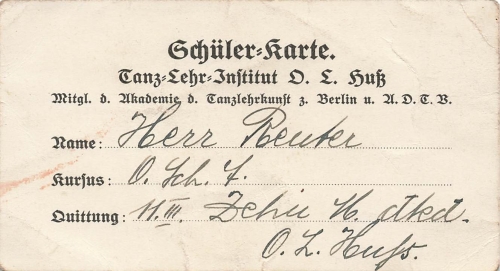 Schüler-Karte.
Tanz-Lehr-Institut O. L. Huß
Mitgl. d. Akademie d. Tanzlehrkunst z. Berlin u. A. D. T. V.
Name: Herr Reuter
Kursus: O. Sch. F.
Quittung: 11. III. Zehn M. dkd.
O. L. Huß.